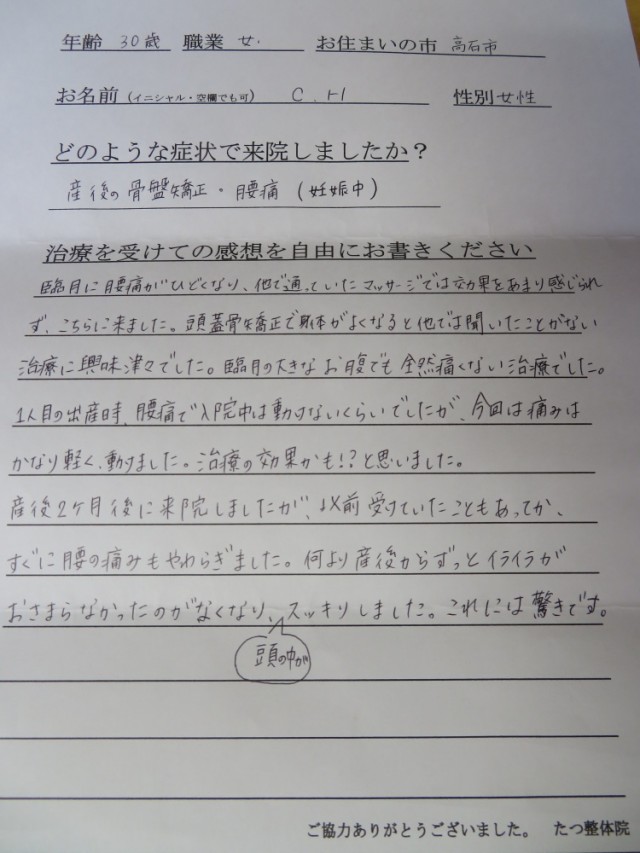 年齢 30歳 職業 女. お住まいの市 高石市
お名前(イニシャル・空欄でも可) C.H 性別 女性
どのような症状で来院しましたか？
産後の骨盤矯正・腰痛(妊娠中)
治療を受けての感想を自由にお書きください
臨月に腰痛がひどくなり、他で通っていたマッサージでは効果をあまり感じられ
ず、こちらに来ました。頭蓋骨矯正で身体がよくなると他では聞いたことがない
治療に興味津々でした。臨月の大きなお腹でも全然痛くない治療でした。
1人目の出産時、腰痛で入院中は動けないくらいでしたが、今回は痛みは
かなり軽く、動けました。治療の効果かも!?と思いました。
産後2ヶ月後に来院しましたが、以前受けていたこともあってか、
すぐに腰の痛みもやわらぎました。何より産後からずっとイライラが
おさまらなかったのがなくなり、スッキリしました。これには驚きです。
頭の中が
ご協力ありがとうございました。 たつ整体院